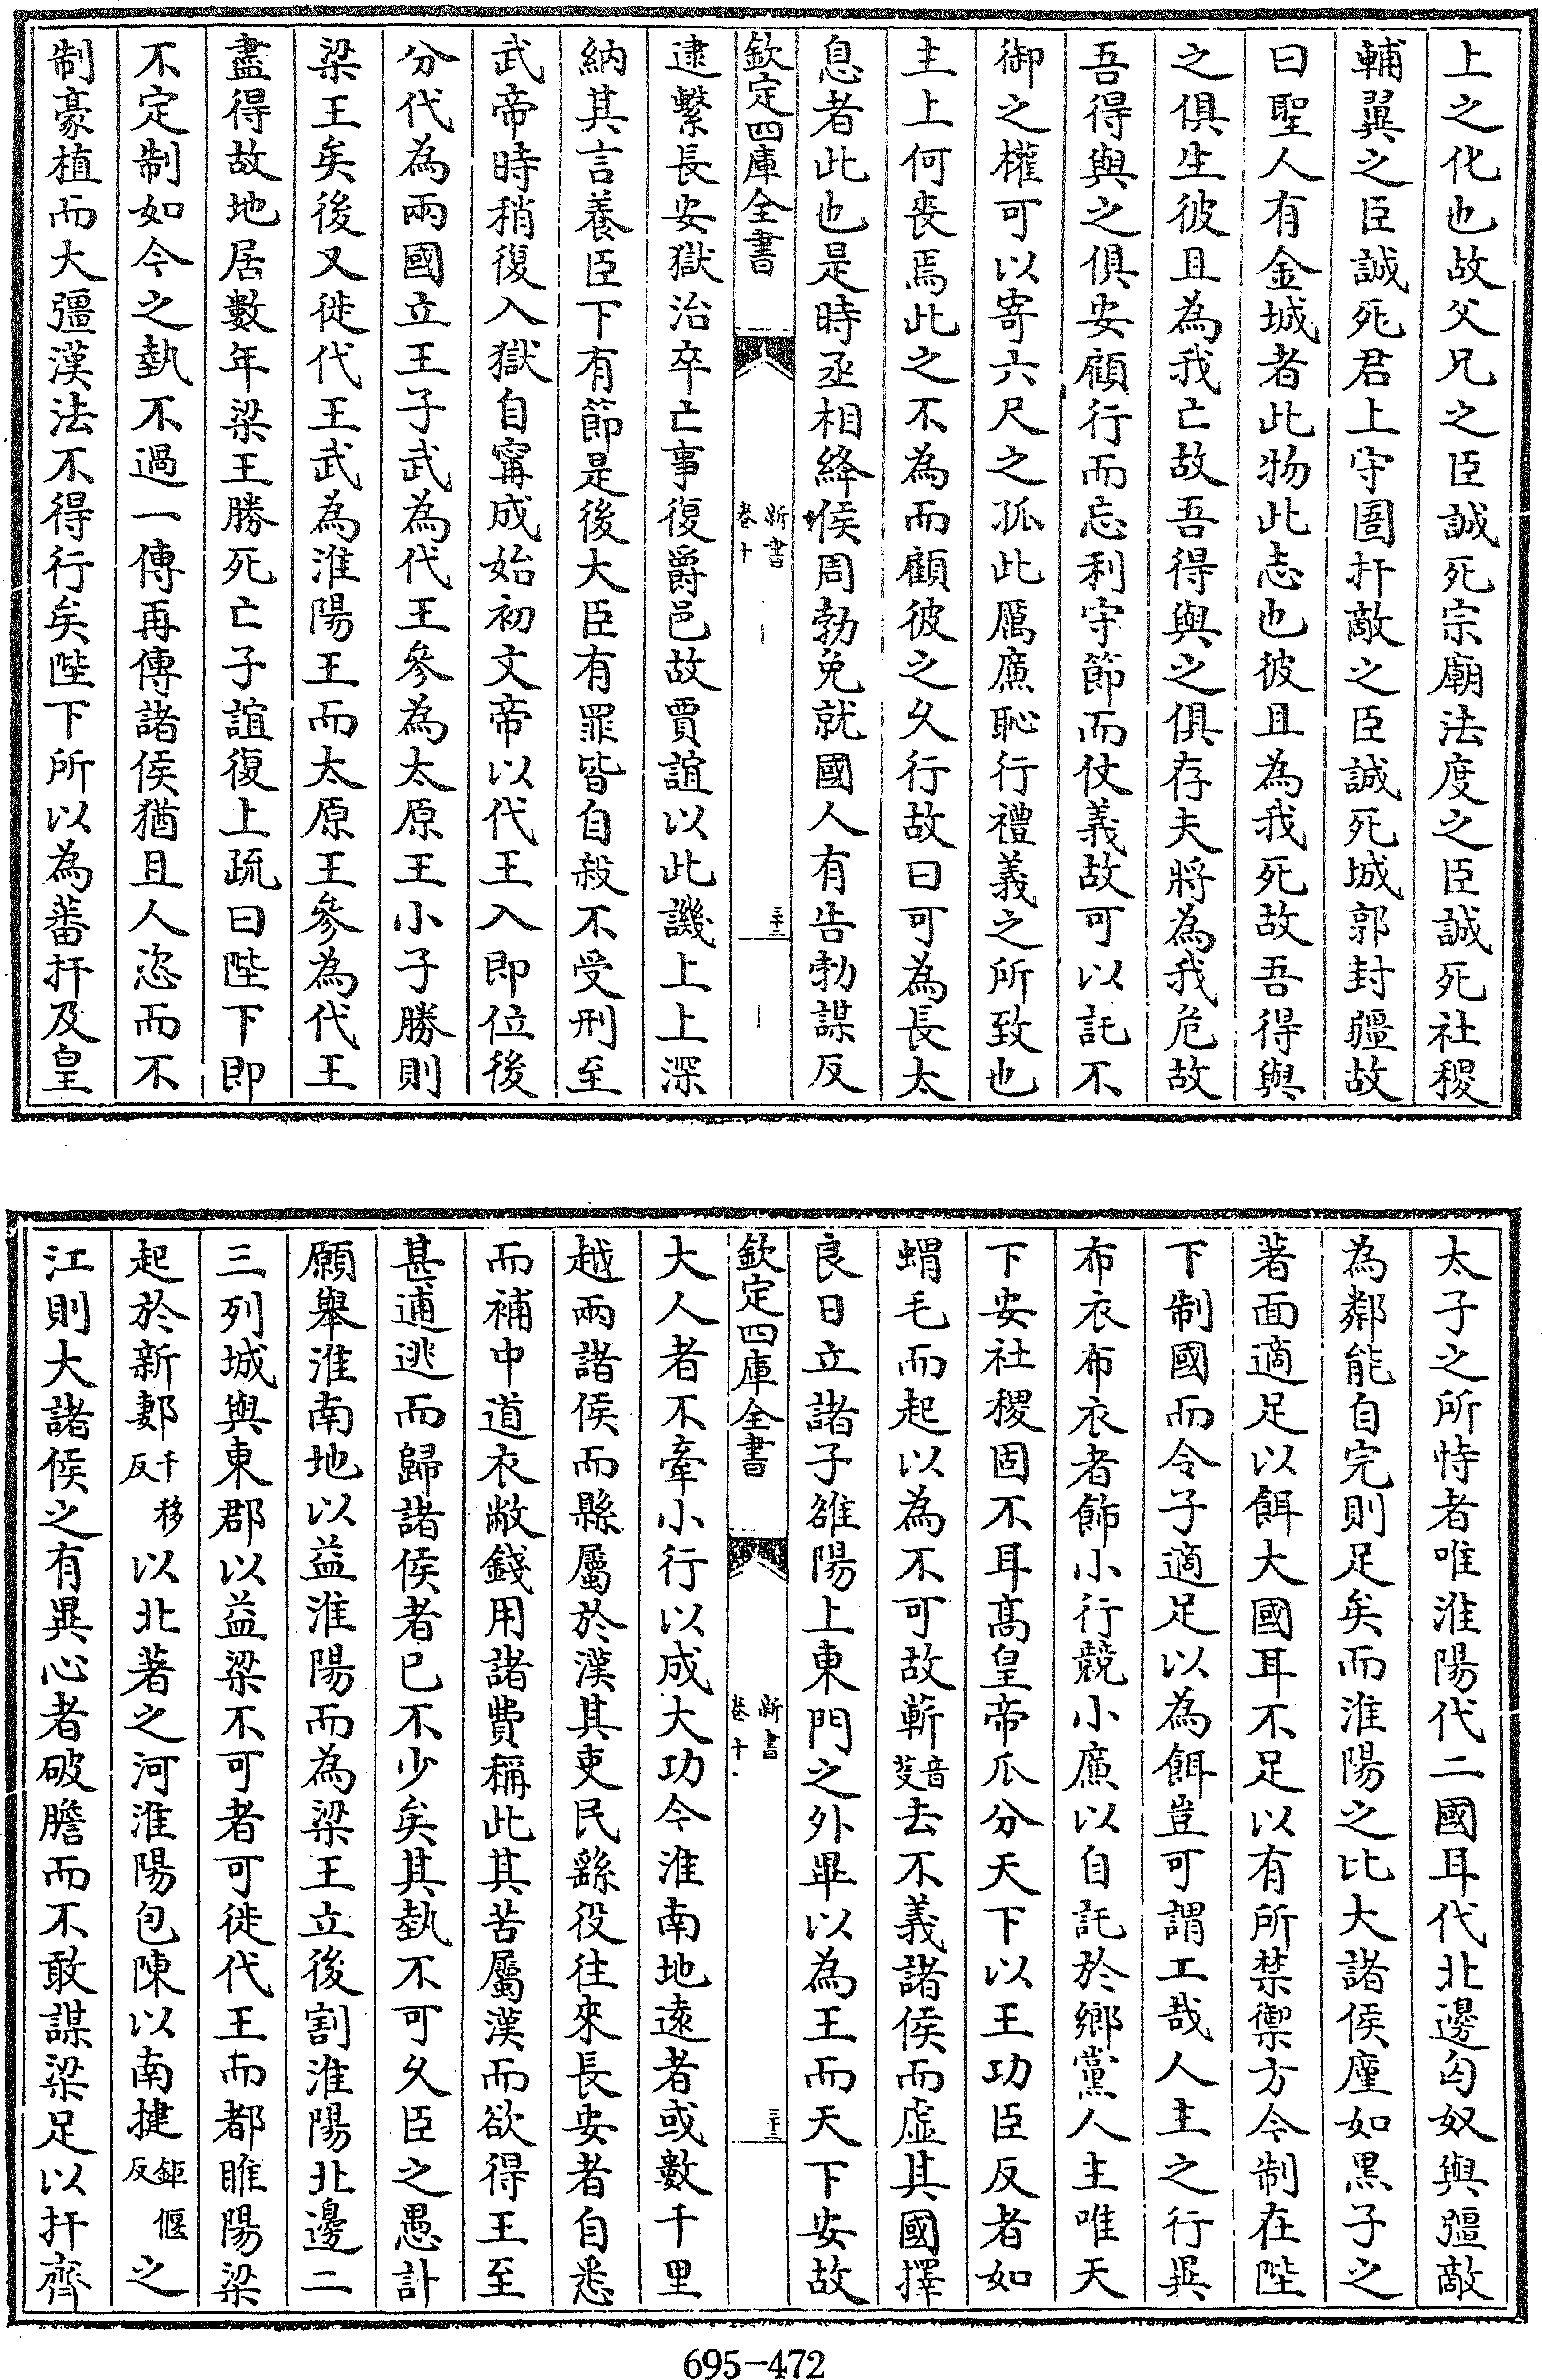 上之化也故父兄之臣誠死宗廟法度之臣誠死社稷
輔翼之臣誠死君上守圄扞敵之臣誠死城郭封疆故
曰聖人有金城者此物此志也彼且為我死故吾得與
之俱生彼且為我亡故吾得與之俱存夫將為我危故
吾得與之俱安顧行而忘利守節而仗義故可以託不
御之權可以寄六尺之孤此厲廉恥行禮義之所致也
主上何喪焉此之不為而顧彼之久行故曰可為長太
息者此也是時丞相絳侯周勃免就國人有告勃謀反
欽定四庫全書
新書
卷十
三十二
逮繫長安獄治卒亡事復爵邑故賈誼以此譏上上深
納其言養臣下有節是後大臣有罪皆自殺不受刑至
武帝時稍復入獄自甯成始初文帝以代王入即位後
分代為兩國立王子武為代王參為太原王小子勝則
梁王矣後又徙代王武為淮陽王而太原王參為代王
盡得故地居數年梁王勝死亡子誼復上疏曰陛下即
不定制如今之埶不過一傳再傳諸侯猶且人恣而不
制豪植而大彊漢法不得行矣陛下所以為蕃扞及皇
太子之所恃者唯淮陽代二國耳代北邊匈奴與彊敵
為鄰能自完則足矣而淮陽之比大諸侯廑如黑子之
著面適足以餌大國耳不足以有所禁禦方今制在陛
下制國而令子適足以為餌豈可謂工哉人主之行異
布衣布衣者飾小行競小廉以自託於鄉黨人主唯天
下安社稷固不耳高皇帝瓜分天下以王功臣反者如
蝟毛而起以為不可故蔪音芟去不義諸侯而虛其國擇
良日立諸子雒陽上東門之外畢以為王而天下安故
欽定四庫全書
新書
卷十
三十三
大人者不牽小行以成大功今淮南地遠者或數千里
越兩諸侯而縣屬於漢其吏民繇役往來長安者自悉
而補中道衣敝錢用諸費稱此其苦屬漢而欲得王至
甚逋逃而歸諸侯者已不少矣其埶不可久臣之愚計
願舉淮南地以益淮陽而為梁王立後割淮陽北邊二
三列城與東郡以益梁不可者可徙代王而都睢陽梁
起於新郪千移反以北著之河淮陽包陳以南揵鉅偃反之
江則大諸侯之有異心者破膽而不敢謀梁足以扞齊
695-472